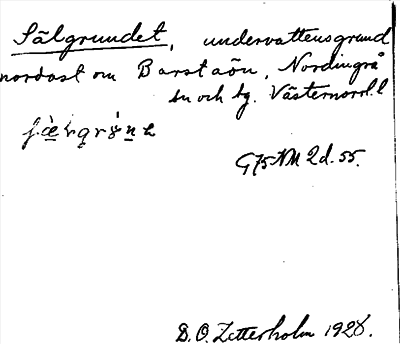 Sälgrundet, undervattensgrund
nordost om Barstaön, Nordingrå
sn och tg. Västernorrl. l
G75 NM 2d. 55.
D. O. Zetterholm 1928.